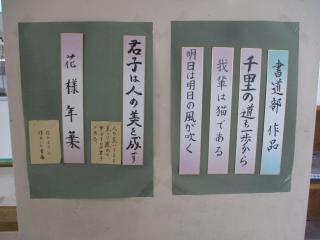 書道部 作品
千里の道も一歩から
我輩は猫である
明日は明日の風が吹く
君子は人の美を成す
花様年華